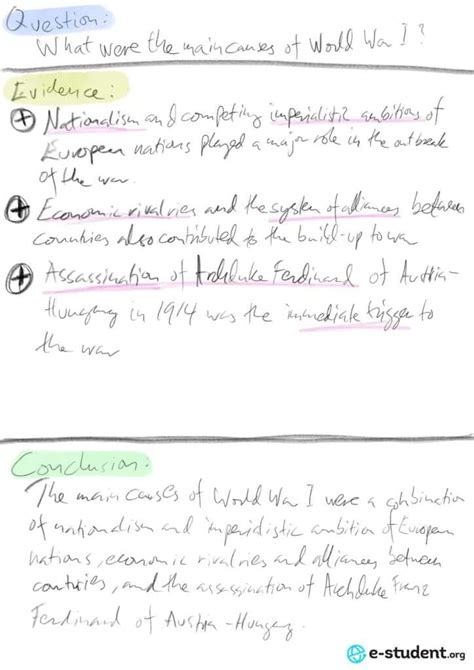 Question:
What were the main causes of World War I?
Evidence:
+ Nationalism and competing imperialistic ambitions of
European nations played a major role in the outbreak
of the war.
+ Economic rivalries and the system of alliances between
countries also contributed to the build-up to war
+ Assassination of Archduke Ferdinand of Austria-
Hungary in 1914 was the immediate trigger to
the war
Conclusion:
The main causes of World War I were a combination
of nationalism and imperialistic ambition of European
nations, economic rivalries and alliances between
countries, and the assassination of Archduke Franz
Ferdinand of Austria-Hungary.
e-student.org